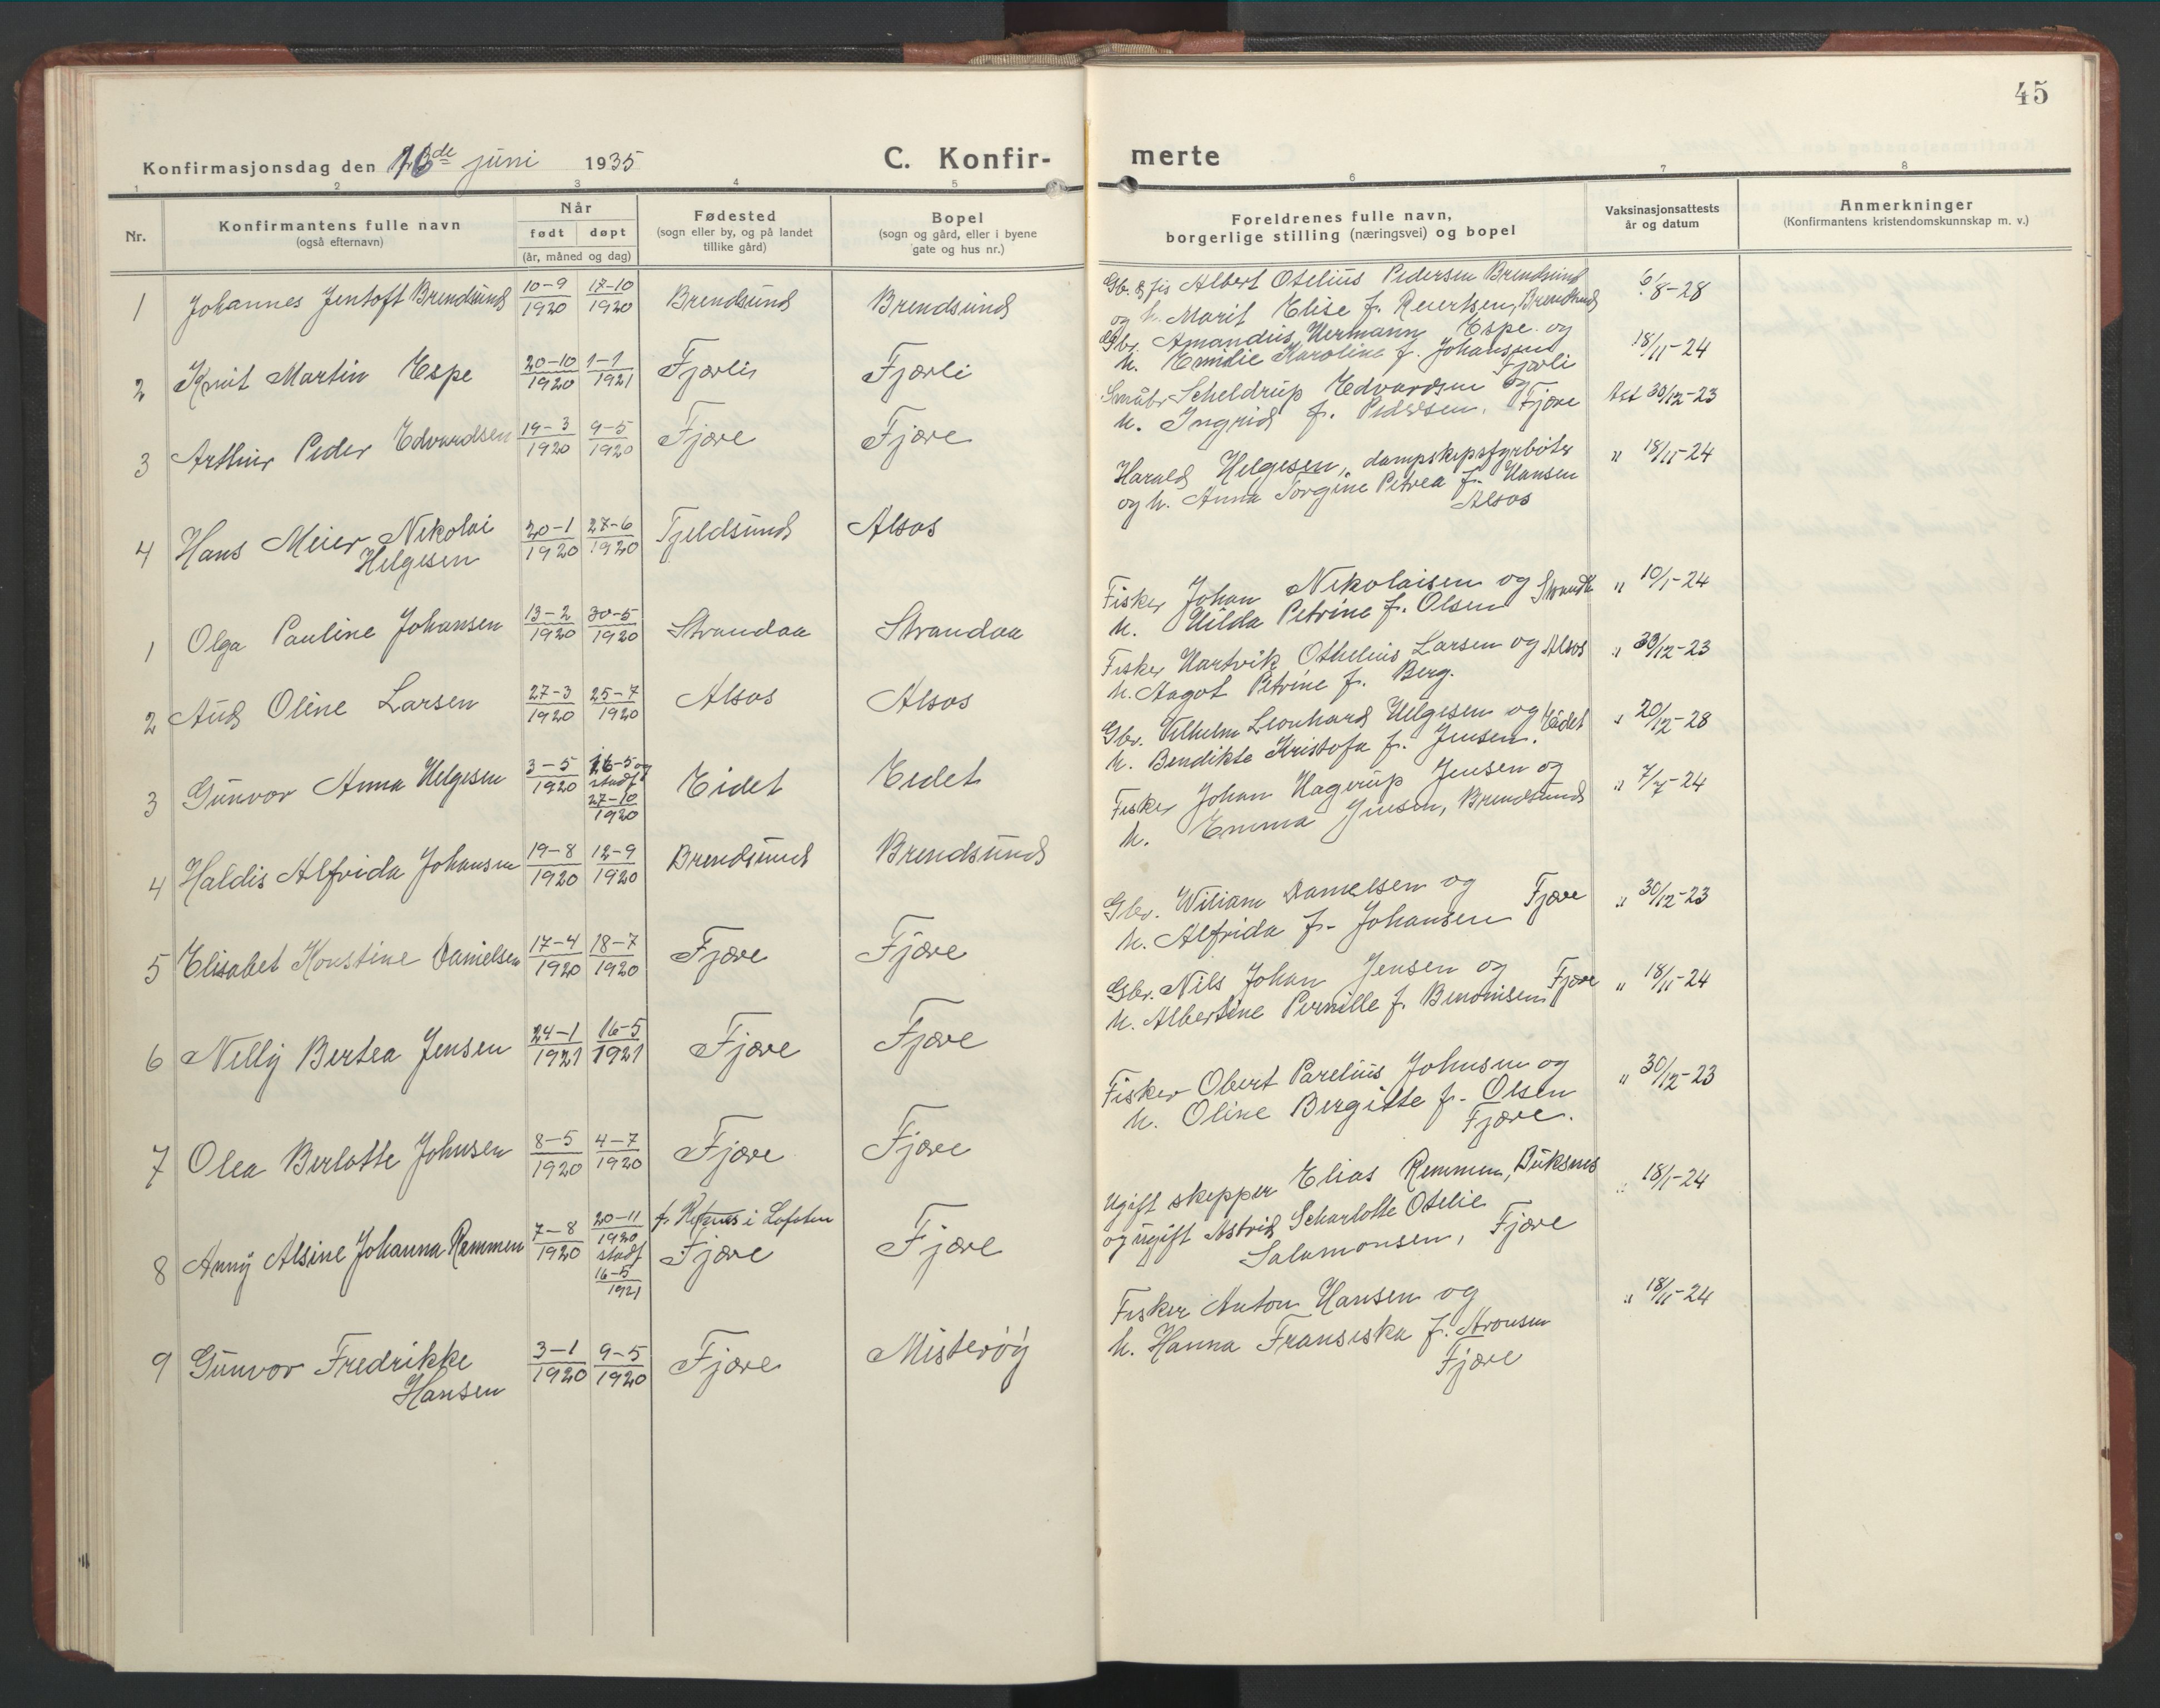 45
Konfirmasjonsdag den 16de juni 1935 C. Konfir- merte
1 2 3 4 5 6 7 8
Nr.
Konfirmantens fulle navn
(også efternavn)
Når
født døpt
(år, måned og dag)
Fødested
(sogn eller by, og på landet
tillike gård)
Bopel
(sogn og gård, eller i byene
gate og hus nr.)
Foreldrenes fulle navn,
borgerlige stilling (næringsvei) og bopel
Vaksinasjonsattests
år og datum
Anmerkninger
(Konfirmantens kristendomskunnskap m. v.)
1 Johannes Jentoft Brendsund 10-9 1920 17-10 1920 Brendsund Brendsund
Gb. & fis Albert Otelius Pedersen Brendsund 6/8-28
og h. Marit Elise f. Reiertsen, Brendsund
2 Knut Martin Espe 20-10 1920 1-1 1921 Fjærli Fjærli
Gbr. Amandus Hermann Espe og 18/11-24
h. Emilie Karoline f. Johansen
Fjærli
3 Arthur Peder Edvardsen 19-3 1920 9-5 1920 Fjære Fjære
Småbr Scheldrup Edvardsen og Att 30/12-23
h. Ingrid f. Pedersen. Fjære
4 Hans Meier Nikolai 20-1 1920 27-6 1920 Tjeldsund Alsos
Helgesen
Harald Helgesen, dampskipsfyrbøter " 18/11-24
og h. Anna Torgine Petrea f. Hansen
Alsos
1 Olga Pauline Johansen 13-2 1920 30-5 1920 Strandaa Strandaa
Fisker Johan Nikolaisen og " 10/1-24
h. Hilda Petrine f. Olsen
2 Aud Oline Larsen 27-3 1920 25-7 1920 Alsos Alsos
Fisker Hartvik Othelius Larsen og Alsos " 30/12-23
h. Aagot Petrine f. Berg.
3 Gunvor Anna Helgesen 3-5 1920 16-5 og
stadf
27-10
1920 Eidet Eidet
Gbr. Vilhelm Leonhard Helgesen og Eidet " 20/12-28
h. Bendikte Kristofa f. Jensen.
4 Haldis Alfrida Johansen 19-8 1920 12-9 1920 Brendsund Brendsund
Fisker Johan Hagerup Jensen og " 7/7-24
h. Emma Jensen, Brendsund
5 Elisabet Konstine Danielsen 17-4 1920 18-7 1920 Fjære Fjære
Gbr. Wiliam Danielsen og Fjære " 30/12-23
h. Alfrida f. Johansen
6 Nelly Bertea Jensen 24-1 1921 16-5 1921 Fjære Fjære
Gbr. Nils Johan Jensen og Fjære " 18/11-24
h. Albertine Pernille f. Benonisen
7 Olea Berlotte Johnsen 8-5 1920 4-7 1920 Fjære Fjære
Fisker Obert Parelius Johnsen og " 30/12-23
h. Oline Bergitte f. Olsen
Fjære.
8 Anny Alsine Johanna Remmen 7-8 1920 20-11
1920
stadf
16-5
1921 i Lofoten
Fjære Fjære
Ugift skipper Elias Remmen, Buksnes " 18/1-24
og ugift Astrid Scharlotte Otelie
Salamonsen, Fjære
9 Gunvor Fredrikke 3-1 1920 9-5 1920 Fjære Misterøy
Hansen
Fisker Anton Hansen og " 18/11-24
h. Hanna Fransiska f. Aronsen
Fjære